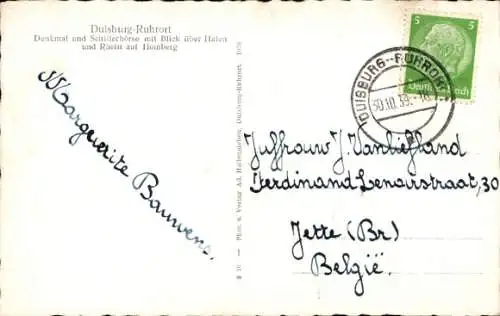 Duisburg-Ruhrort
Denkmal und Schifferbörse mit Blick über Hafen
und Rhein auf Homberg
Marguerite Bauwens.
Phot. u. Verlag Ad. Duisburg-Ruhrort
DUISBURG-RUHRORT
30.10.39.
5 5
Juffrouw J. Vanlieffland
Ferdinand Lenairstraat, 30
Jette (Br)
België.